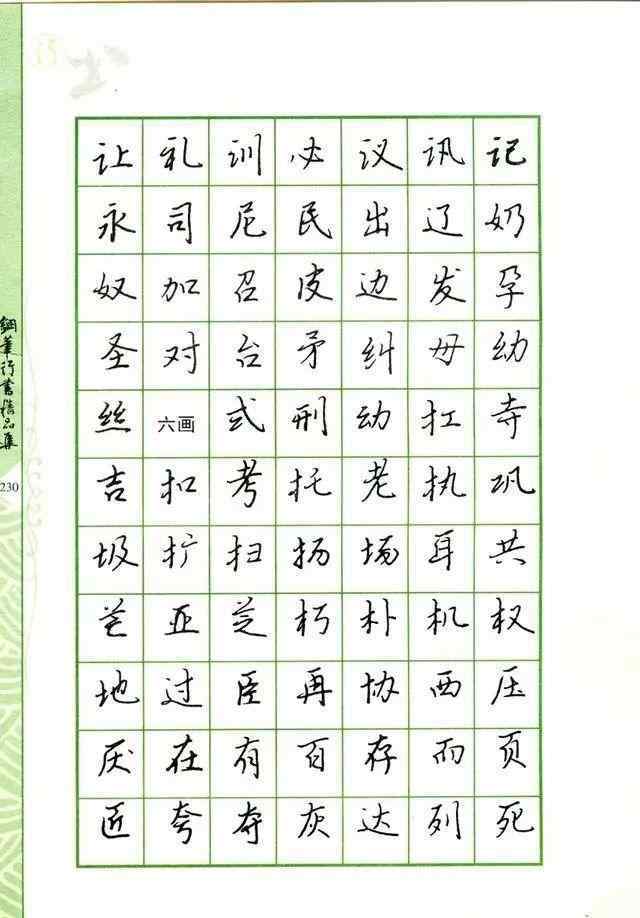 让 礼 训 必 议 讯 记
永 司 尼 民 出 辽 奶
奴 加 召 皮 边 发 孕
圣 对 台 矛 纠 母 幼
丝 六画 式 刑 动 扛 寺
吉 扣 考 托 老 执 巩
圾 扩 扫 扬 场 耳 共
芒 亚 芝 朽 朴 机 权
地 过 臣 再 协 西 压
厌 在 有 百 存 而 页
匠 夸 夺 灰 达 列 死
鋼筆行書精品集
230